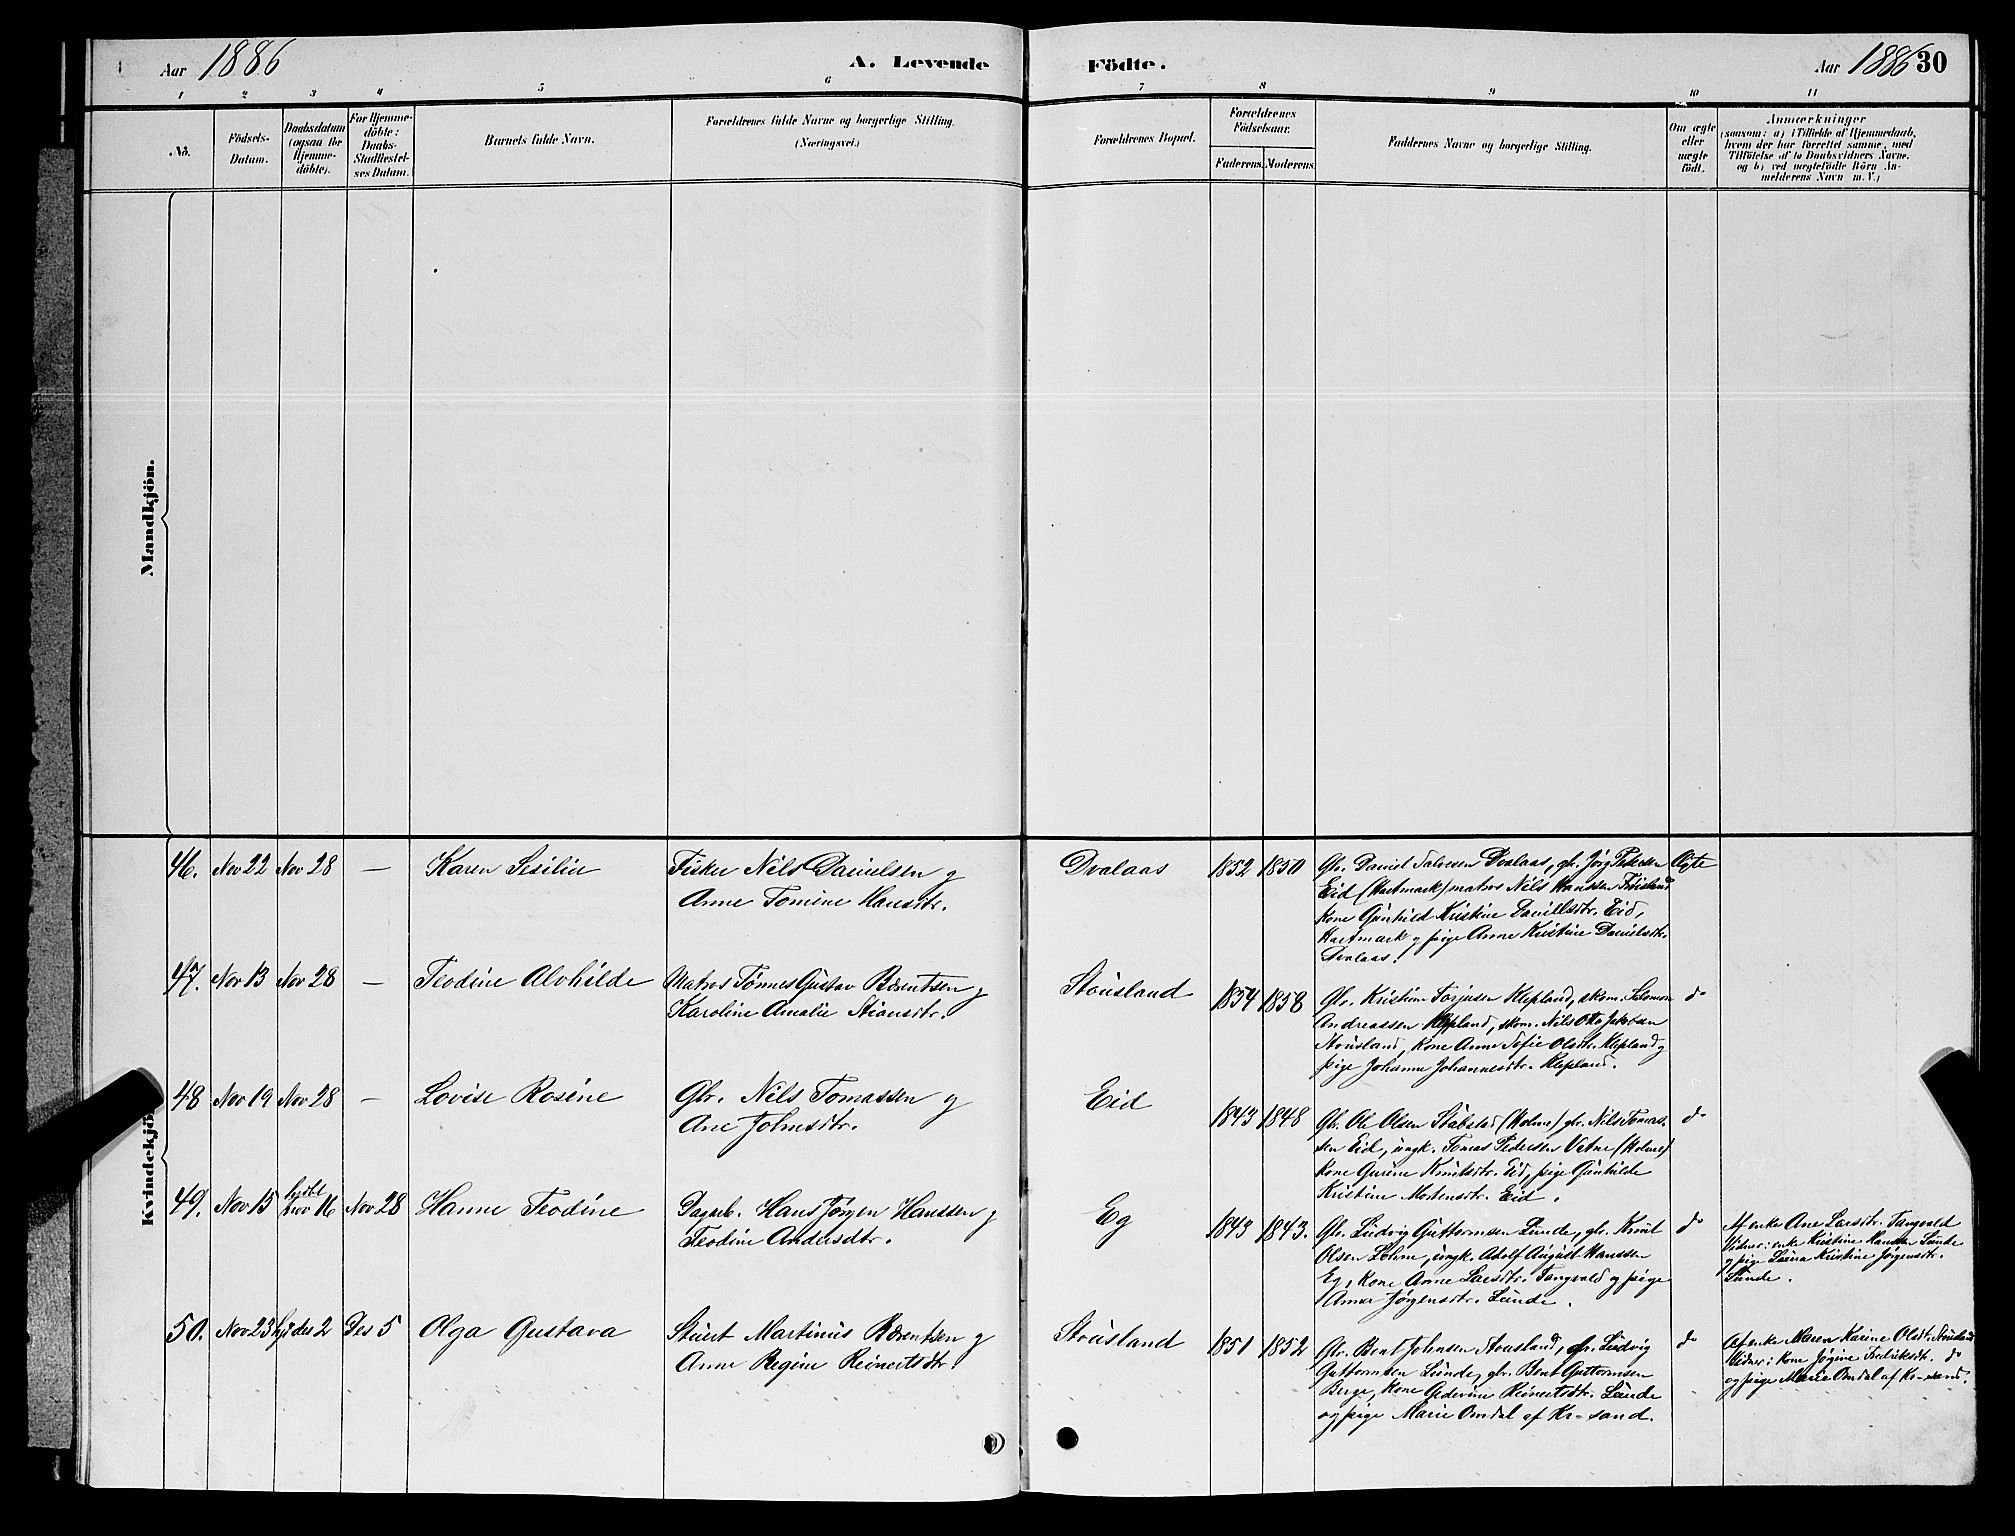 Aar 1886 A. Levende Födte. Aar 1886 30
1 2 3 4 5 6 7 8 9 10 11
No.
Födsels-
Datum.
Daabsdatum
(ogsaa for
Hjemme-
döbte).
For Hjemme-
döbte:
Daabs-
Stadfæstel-
ses Datum.
Barnets fulde Navn.
Forældrenes fulde Navne og borgerlige Stilling.
(Næringsvei.)
Forældrenes Bopæl.
Forældrenes
Födselsaar.
Faderens. Moderens.
Faddernes Navne og borgerlige Stilling.
Om ægte
eller
uægte
födt.
Anmærkninger
(saasom: a) i Tilfælde af Hjemmedaab,
hvem der har forrettet samme, med
Tilföielse af to Daabsvidners Navne.
og b) ved uægtefödte Börn An-
melderens Navn m. V.)
Mandkjön.
Kvindekjö
46. Nov 22 Nov 28 —
Karen Sesilie
Fisker Nils Danielsen og
Anne Tomine Hansdtr.
Dvalaas
1852 1850
Gbr. Daniel Salvesen Dvalaas, gbr. Jörg Pedersen
Eid (Hartmark) matros Nils Hanssen
kone Gunhild Kristine Danielsdtr. Eid,
Hartmark og pige Anne Kristine Danielsdtr.
Dvalaas.
Ægte
47. Nov 13 Nov 28 —
Teodine Alvhilde
Matros Tönnes Gustav Bærentsen og
Karoline Amalie Stiansdtr.
Stousland
1854 1858
Gbr. Kristian Torjusen Klepland, skom. Salomon
Andreassen Klepland, skom. Nils Otto Jakobsen
Stousland, kone Anne Sofie Olsdtr. Klepland og
pige Johanne Johannesdtr. Klepland.
do
48 Nov 19 Nov 28 —
Lovise Rosine
Gbr. Nils Tomassen og
Ane Johnsdtr.
Eid
1843 1848
Gbr. Ole Olsen Stubstad (Holme) gbr. Nils Tomas-
sen Eid, ungk. Tomas Pedersen Vatne (Holme)
kone Gurine Knutsdtr. Eid, pige Gunhilde
Kristine Mortensdtr. Eid.
do
49. Nov 15 hjdbt nov 16 Nov 28
Hanne Teodine
Dagarb. Hans Jörgen Hanssen og
Teodine Andersdtr.
Eg
1843 1843.
Gbr. Ludvig Guttormsen Lunde, gbr. Knut
Olsen Lohne, ungk. Adolf August Hanssen
Eg, kone Anne Larsdtr. Tangvald og pige
Anna Jörgensdtr. Lunde.
do
Af enke Ane Larsdtr. Tangvald
Vidner: enke Kristine Hansen Lunde
og pige Laura Kristine Jörgensdtr.
Lunde.
50. Nov 23 hjd des 2 Des 5
Olga Gustava
Stuert Martinus Bærentsen og
Anne Regine Reinertsdtr.
Stousland
1851 1852
Gbr. Bent Johnsen Stousland, gbr. Ludvig
Guttormsen Lunde, gbr. Bent Guttormsen
Berge, kone Gederine Reinertsdtr. Lunde
og pige Marie Omdal af Kr-sand.
do
Af enke Maren Karine Olsdtr. Stousland
Vidner: kone Jögine Fredriksdtr. do
og pige Marie Omdal af Kr-sand.